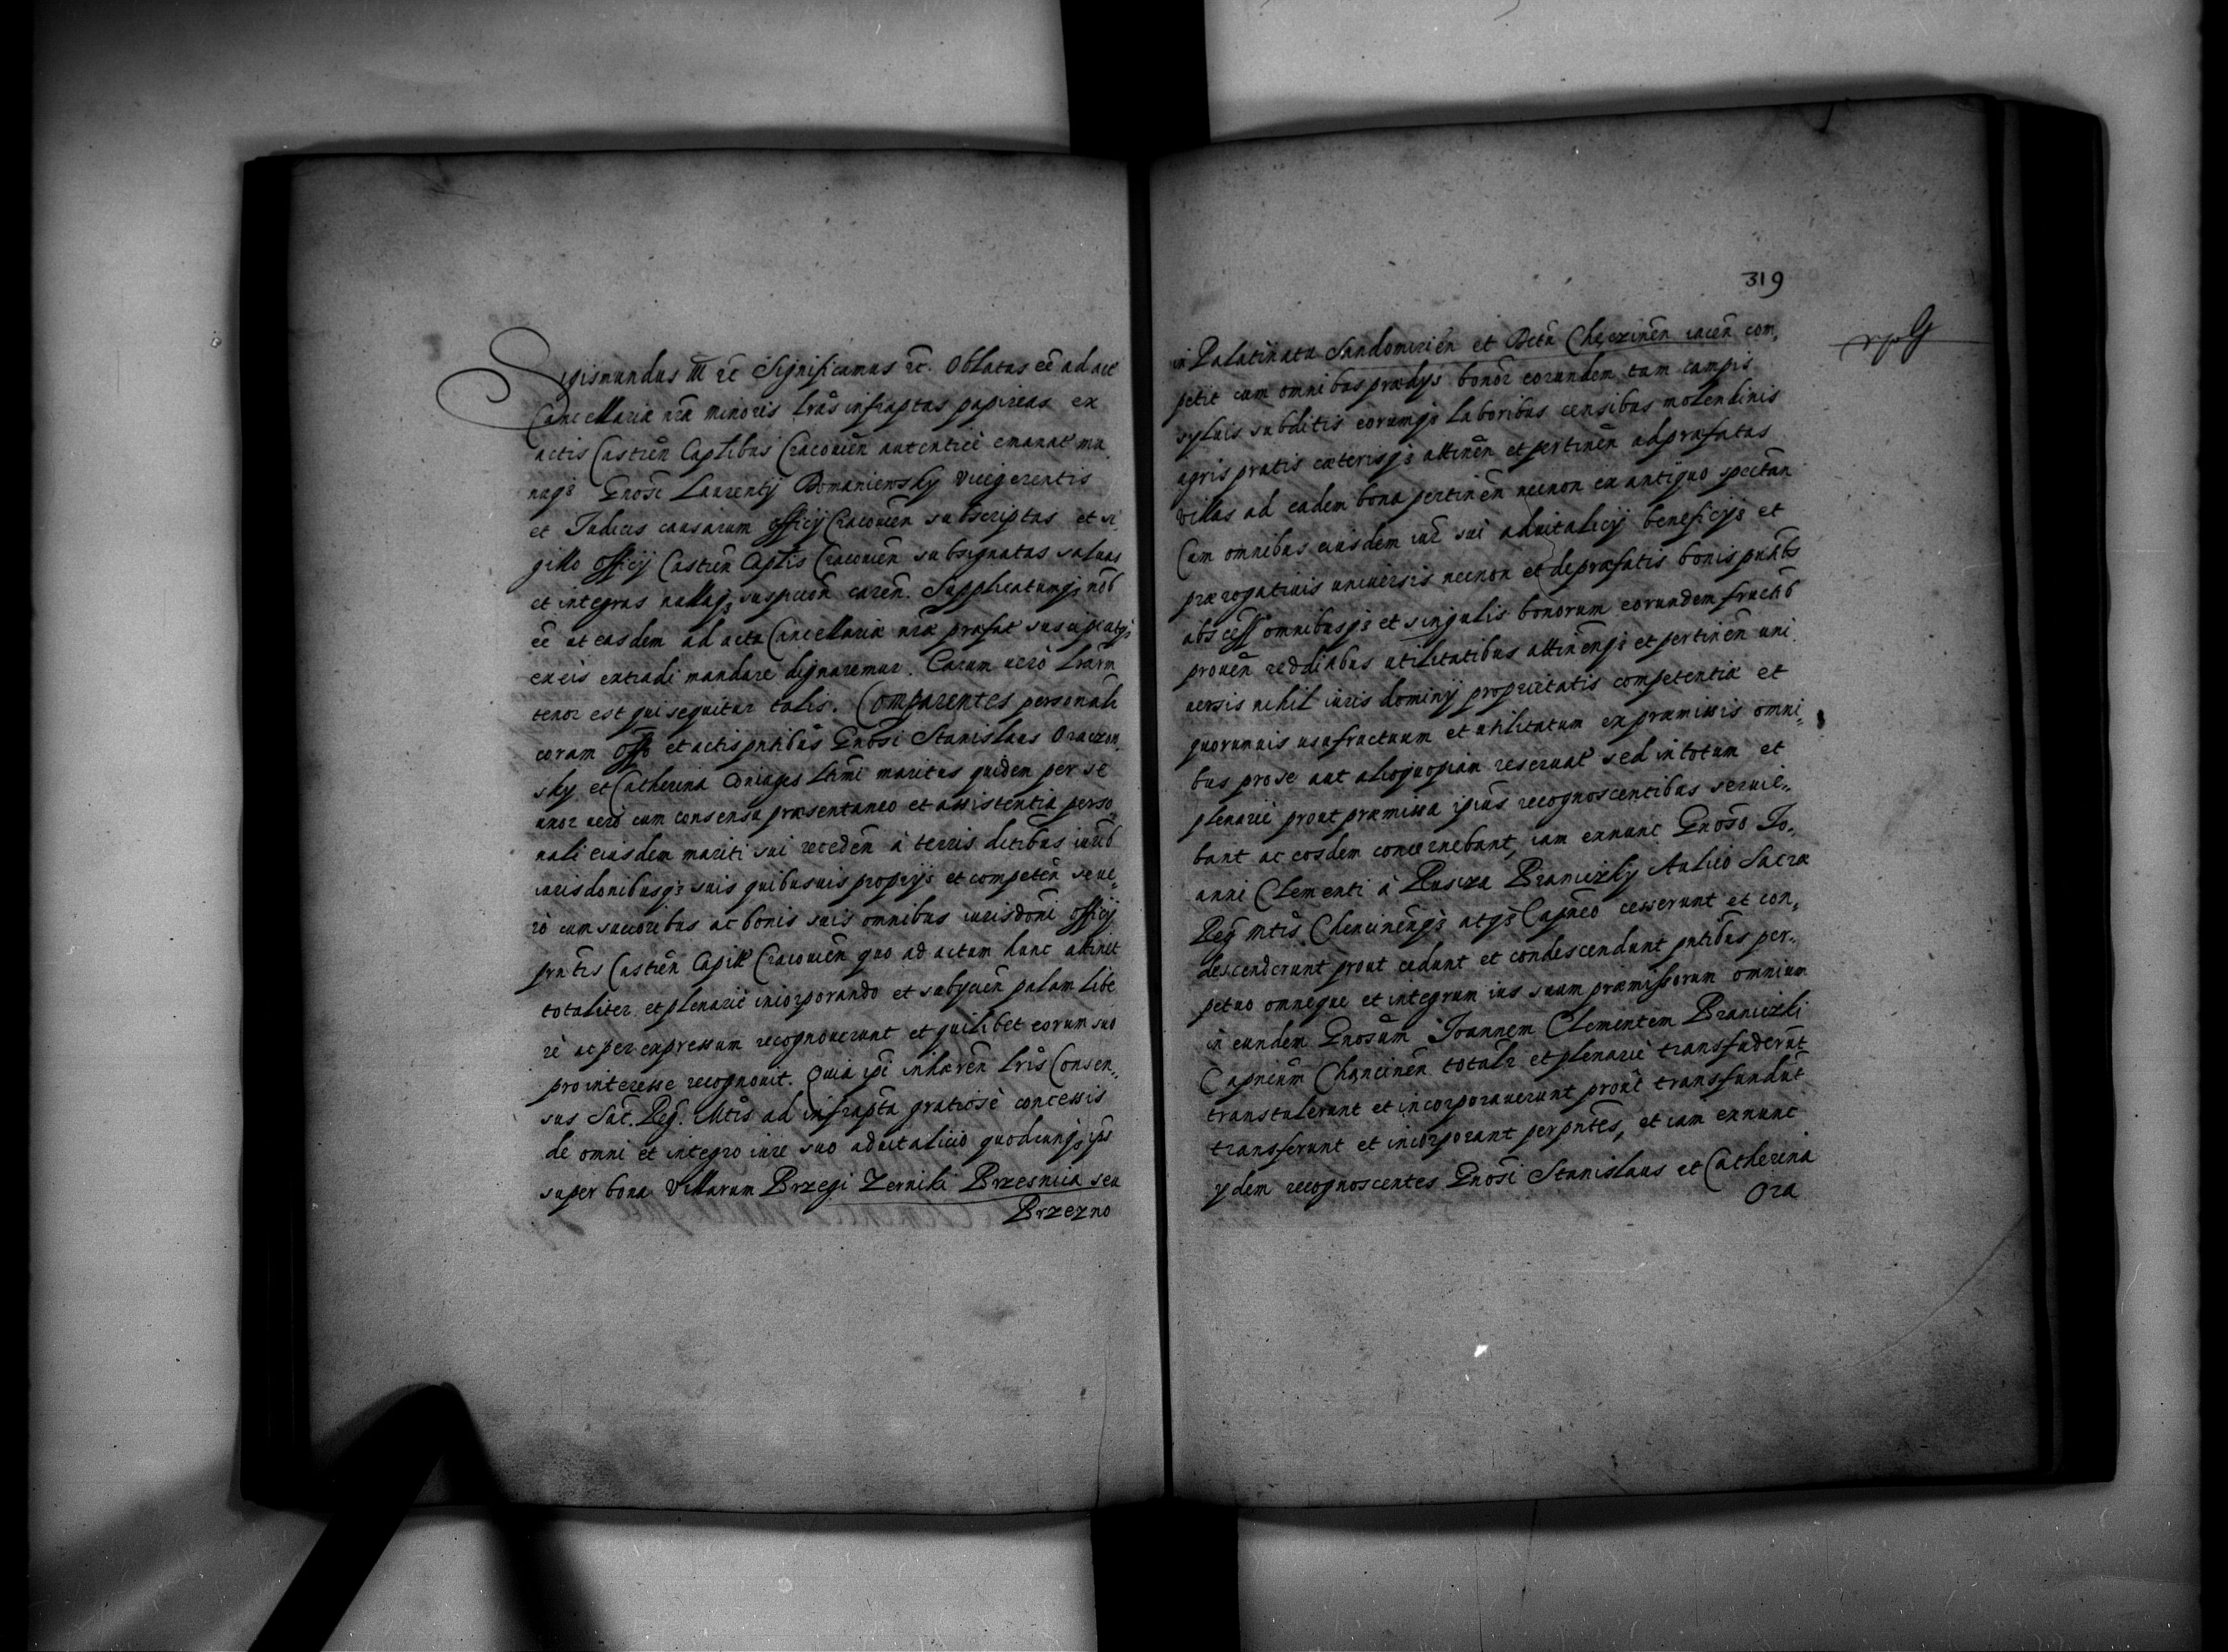 Sigismundus III etc Significamus etc. Oblatas eē ad acta
Cancellariæ nrā minoris lrās infraptas papireas ex
actis Castren̄ Captlibus Cracouien̄ autenticè emanat ma
nuq3 Gnosi Laurentij Romaniewsky Vicegerentis
et Judicis causarum officij Cracouien̄ subscriptas et si,
gillo officij Castren̄ Captlis Cracouien̄ subsignatas saluas
et integras nullaq3 suspicion̄ caren̄. Supplicatumq3 nob
eē ut easdem ad acta Cancellariæ nræ præfat suscipi atq3
ex eis extradi mandare dignaremur. Earum uerò lrārm
tenor est qui sequitur talis. Comparentes personalr
coram offo et actis pntibus Gnosi Stanislaus Oraczow,
sky et Catherina Coniuges Lttimi maritus quidem per se
uxor uerò cum consensu præsentaneo et assistentia perso
nali eiusdem mariti sui receden̄ à terris distribus iurib
iurisdonibusq3 suis quibusuis proprijs et competen̄ seue,
rò cum succoribus ac bonis suis omnibus iurisdoni officij
pntis Castren̄ Capitl Cracouien̄ quo ad actum hunc attinet
totaliter et plenariè incorporando et subijcien̄ palam libe
rè ac per expressum recognouerunt et quilibet eorum suo
pro interesse recognouit. Quia ipi inhæren̄ lris Consen,
sus Sac. Reg. Mtis ad infrapta gratiosè concessis
de omni et integro iure suo aduitalicio quodcunq3 ipis
super bona Villarum Brzegi Zerniki Brzesnica seu
Brzezno
319
in Palatinatu Sandomirien̄ et Dctu Chęczinen̄ iacen̄ com,
petit cum omnibus prædijs bonor eorundem tam campis
syluis subditis eorumq3 laboribus censibus molendinis
agris pratis cæterisq3 attinen̄ et pertinen̄ ad præfatas
villas ad eadem bona pertinen̄ necnon ex antiquo spectan̄
Cum omnibus eiusdem iur sui aduitalicij beneficijs et
prærogatiuis uniuersis necnon et de præfatis bonis pntibs
abscess omnibusq3 et singulis bonorum eorundem fructib
prouen̄ reddibus utilitatibus attinenq3 et pertinen̄ uni
uersis nihil iuris dominij proprietatis competentiæ et
quorumuis usufructuum et utilitatum ex præmissis omni,
bus pro se aut alio quopian reseruat sed in totum et
plenariè prout præmissa ipius recognoscentibus seruie,
bant ac eosdem concernebant, iam exnunc Gnoso Jo,
anni Clementi à Ruscza Braniczky Aulico Sacræ
Reg Mtis Chencinenq3 atq3 Capneo cesserunt et con,
descenderunt prout cedunt et condescendunt pntibus per,
petuo omneque et integrum ius suum præmissorum omnium
in eundem Gnosum Joannem Clementem Braniczki
Capneum Chęncinen̄ totalr et plenariè transfuderunt
transtulerunt et incorporauerunt prout transfundut
transferunt et incorporant per pntes, et iam exnunc
ydem recognoscentes Gnosi Stanislaus et Catherina
Ora